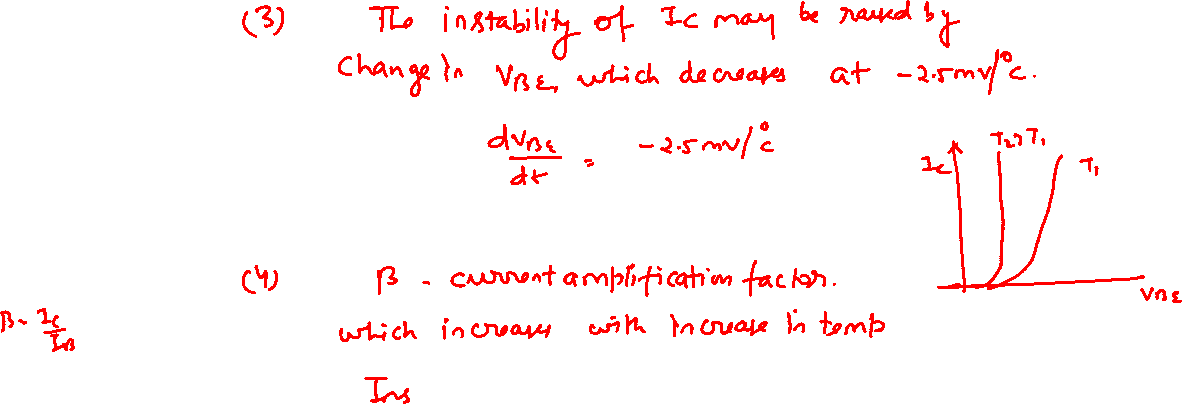 (3) The instability of Ic may be raised by
change in VBE, which decreases at -2.5mv/°c.
dVBE/dt = -2.5mv/°c
Ic
T2>T1
T1
VBE
(4) β - current amplification factor.
which increases with increase in temp
β = Ic/IB
Ins